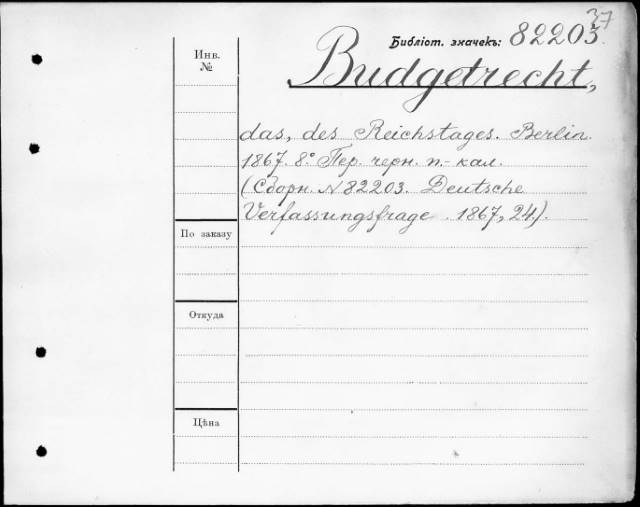 37
Библіот. значекъ: 82203.
Инв.
№
Budgetrecht,
das, des Reichstages. Berlin.
1867. 8° Пер. черн. п.-кал.
(Сборн. N 82203. Deutsche
Verfassungsfrage. 1867, 24).
По заказу
Откуда
Цѣна